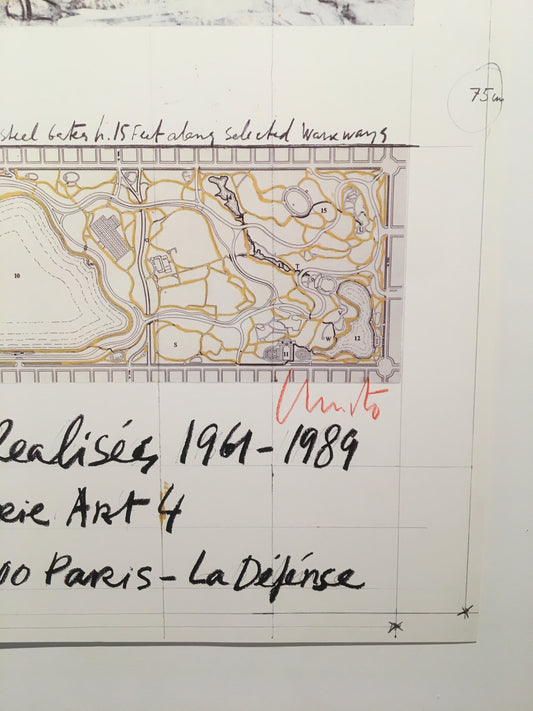 75cm
steel Gates h. 15 Feet along selected Walkways
15
10
T
W
12
S
11
Christo
Realisés 1961-1989
erie Art 4
00 Paris - La Défénse